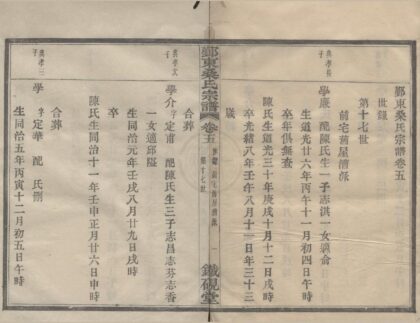 鄞東桑氏宗譜卷五
世錄
第十七世
前宅舊屋清派
興孝長子
學廉 配陳氏生一子志淇一女適俞
生道光廿六年丙午十一月初四日午時
卒年俱無查
陳氏生道光三十年庚戌十月十二日戌時
卒光緒八年壬午八月十一日年三十三
歲
合葬
鄞東桑氏宗譜
卷五
第十七世
一
鐵硯堂
興孝次子
學介 字定甫 配陳氏生三子志昌志芬志香
一女適邱隘
生同治元年壬戌八月廿九日戌時
卒
陳氏生同治十一年壬申正月廿六日申時
合葬
興孝三子
學 字定華 配 氏
生同治五年丙寅十二月初五日午時